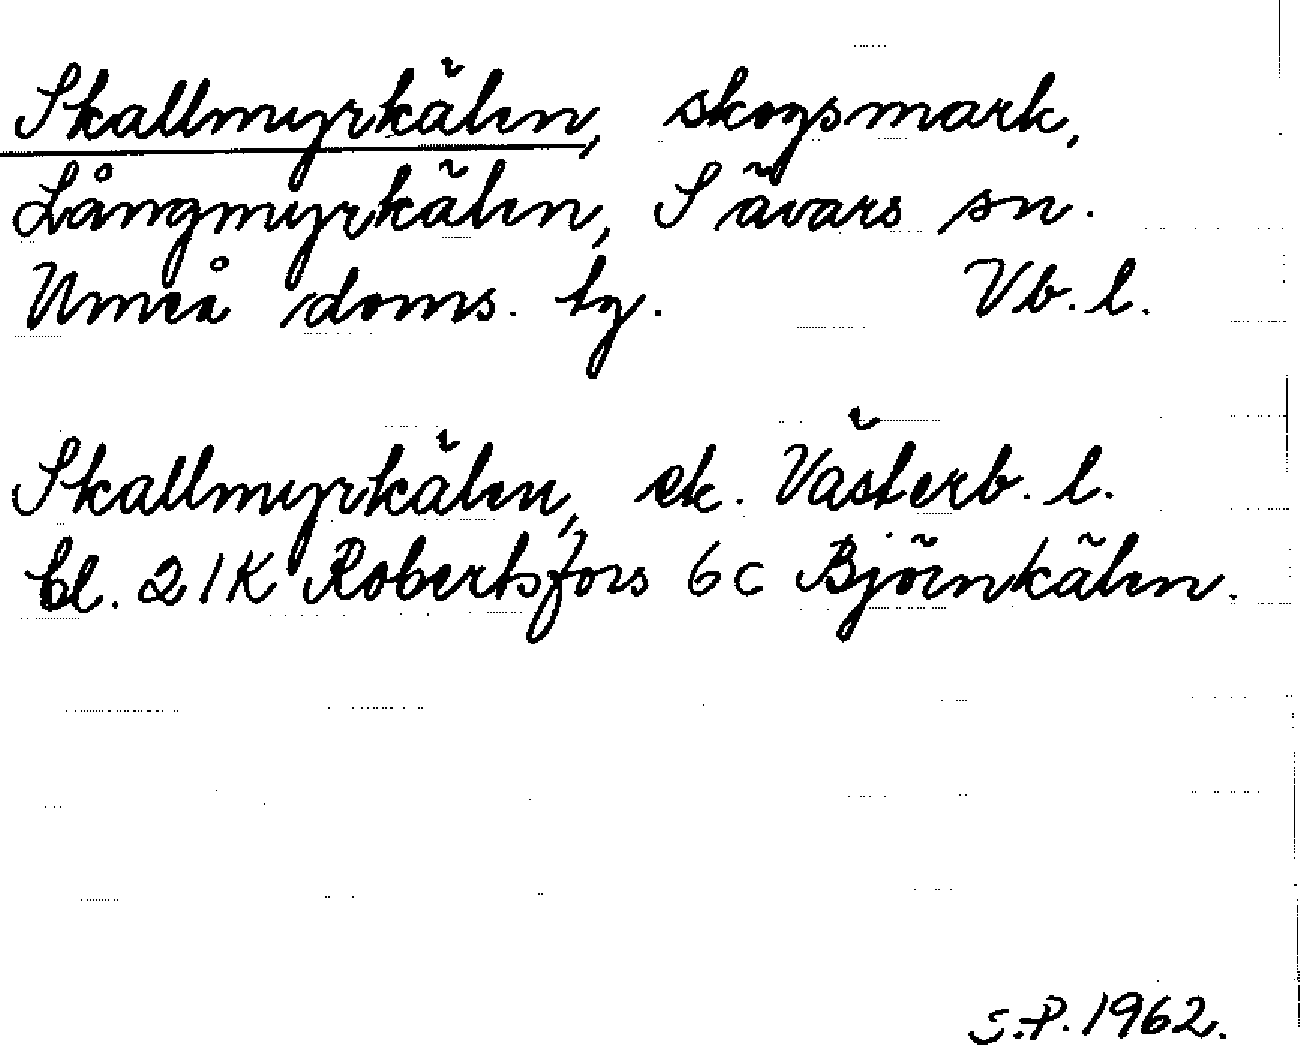 Skallmyrkälen, skogsmark,
Långmyrkälen, Sävars sn.
Umeå doms. tg. Vb. l.
Skallmyrkälen, ek. Västerb. l.
bl. 21K Robertsfors 6c Björnkälen.
S.P. 1962.